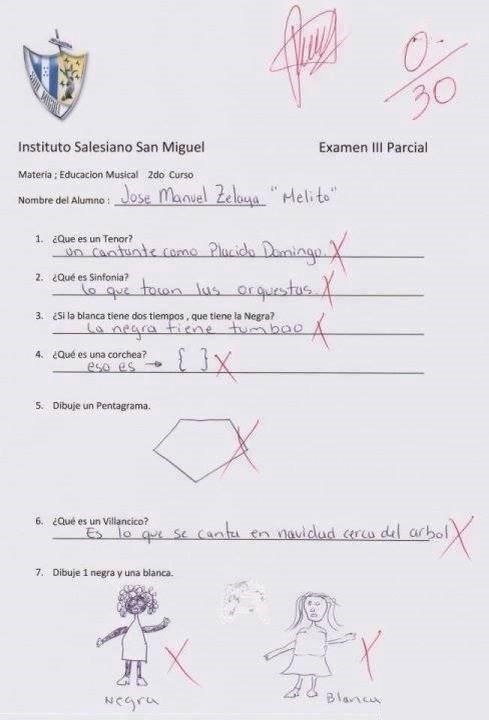 SAN MIGUEL
0
30
Instituto Salesiano San Miguel
Examen III Parcial
Materia ; Educacion Musical 2do Curso
Nombre del Alumno : Jose Manuel Zelaya "Melito"
1. ¿Que es un Tenor?
un cantante como Placido Domingo.
2. ¿Qué es Sinfonía?
lo que tocan las orquestas.
3. ¿Si la blanca tiene dos tiempos , que tiene la Negra?
La negra tiene tumbao
4. ¿Qué es una corchea?
eso es → { }
5. Dibuje un Pentagrama.
6. ¿Qué es un Villancico?
Es lo que se canta en navidad cerca del arbol
7. Dibuje 1 negra y una blanca.
Negra
Blanca